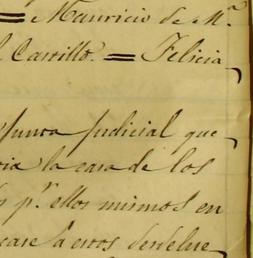 = Mauricio de M.ª
Castillo. = Felicia
punta judicial que
cia la casa de los
p.r ellos mismos en
case á estos